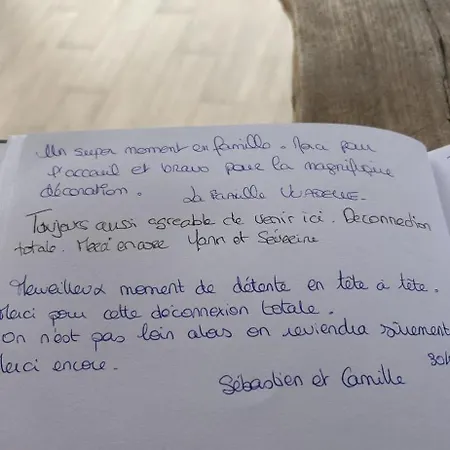 Un super moment en famille. Merci pour
l'accueil et bravo pour la magnifique
décoration. La famille
Toujours aussi agréable de venir ici. Deconnection
totale. Merci encore Yann et Séverine
Merveilleux moment de détente en tête à tête.
Merci pour cette déconnexion totale.
On n'est pas loin alors on reviendra sûrement
Merci encore.
Sébastien et Camille